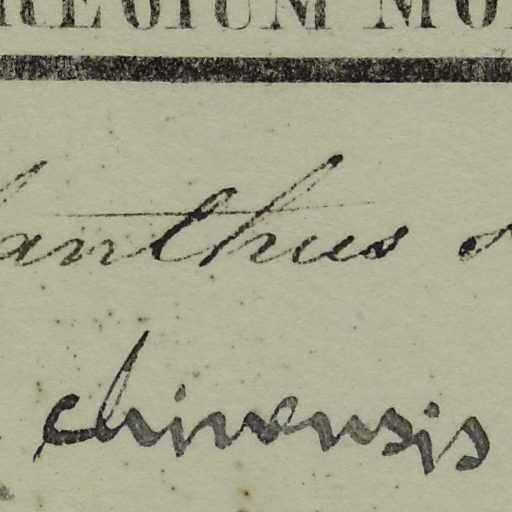 REGIUM MO
anthus
chinensis